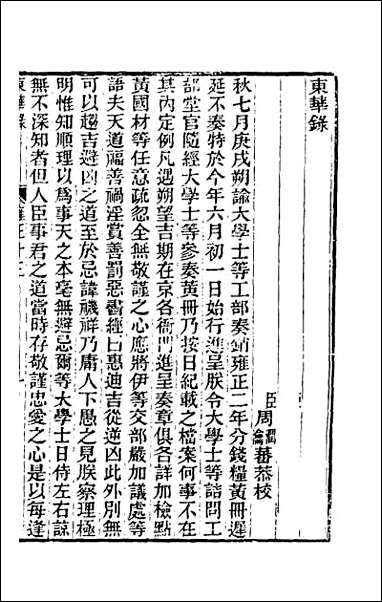 東華錄
臣周潤蕃恭校
瀹
秋七月庚戌朔諭大學士等工部奏銷雍正二年分錢糧黃冊遲
延不奏特於今年六月初一日始行進呈朕令大學士等詰問工
部堂官隨經大學士等參奏黃冊乃按日紀載之檔案何事不在
其內定例凡遇朔望吉期在京各衙門進呈奏章俱各詳加檢點
黃國材等任意疏忽全無敬謹之心應將伊等交部嚴加議處等
語夫天道福善禍淫賞善罰惡書經曰惠迪吉從逆凶此外別無
可以趨吉避凶之道至於忌諱禨祥乃庸人下愚之見朕察理極
明惟知順理以為事天之本毫無避忌爾等大學士日侍左右諒
無不深知者但人臣事君之道當時存敬謹忠愛之心是以每逢
東華錄 雍正十三 一